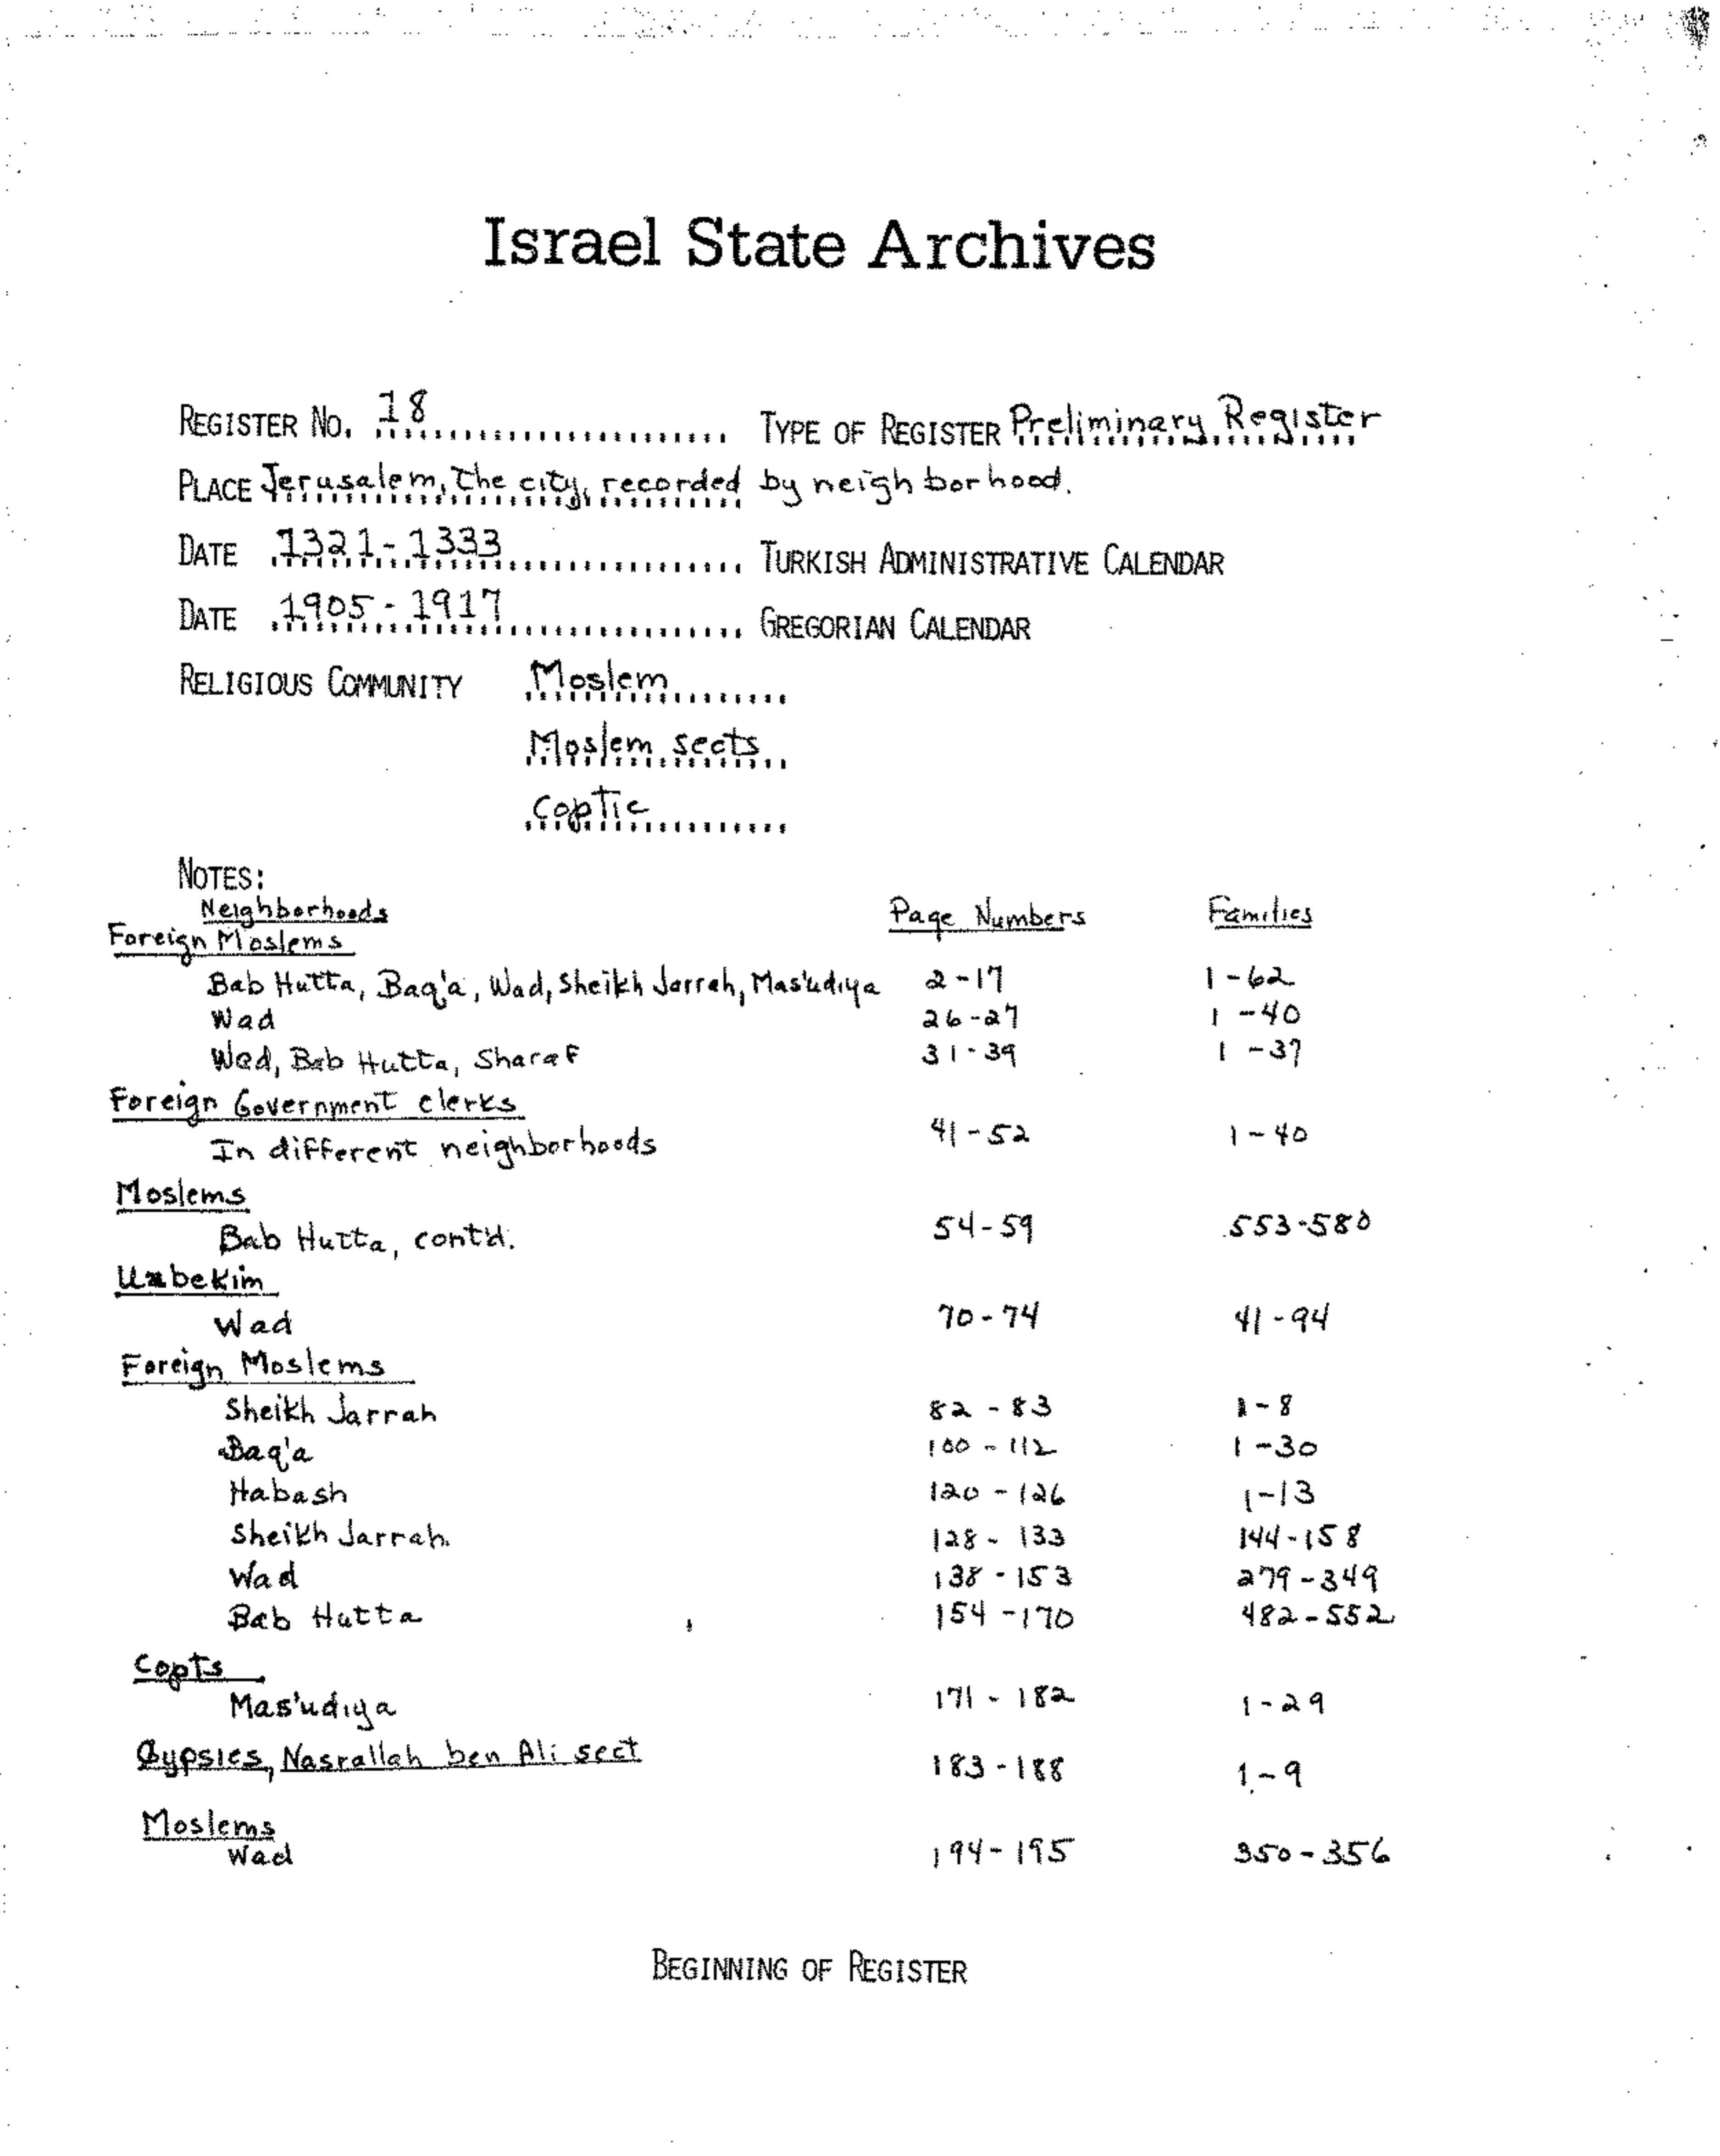 Israel State Archives
REGISTER NO. 18 TYPE OF REGISTER Preliminary Register
PLACE Jerusalem, the city, recorded by neighborhood.
DATE 1321-1333 TURKISH ADMINISTRATIVE CALENDAR
DATE 1905-1917 GREGORIAN CALENDAR
RELIGIOUS COMMUNITY Moslem
Moslem sects
Coptic
NOTES:
Neighborhoods Page Numbers Families
Foreign Moslems
Bab Hutta, Baq'a, Wad, Sheikh Jarrah, Mas'udiya 2-17 1-62
Wad 26-27 1-40
Wad, Bab Hutta, Sharaf 31-39 1-37
Foreign Government clerks
In different neighborhoods 41-52 1-40
Moslems
Bab Hutta, cont'd. 54-59 553-580
Uzbekim
Wad 70-74 41-94
Foreign Moslems
Sheikh Jarrah 82-83 1-8
Baq'a 100-112 1-30
Habash 120-126 1-13
Sheikh Jarrah 128-133 144-158
Wad 138-153 279-349
Bab Hutta 154-170 482-552
Copts
Mas'udiya 171-182 1-29
Gypsies, Nasrallah ben Ali sect 183-188 1-9
Moslems
Wad 194-195 350-356
BEGINNING OF REGISTER